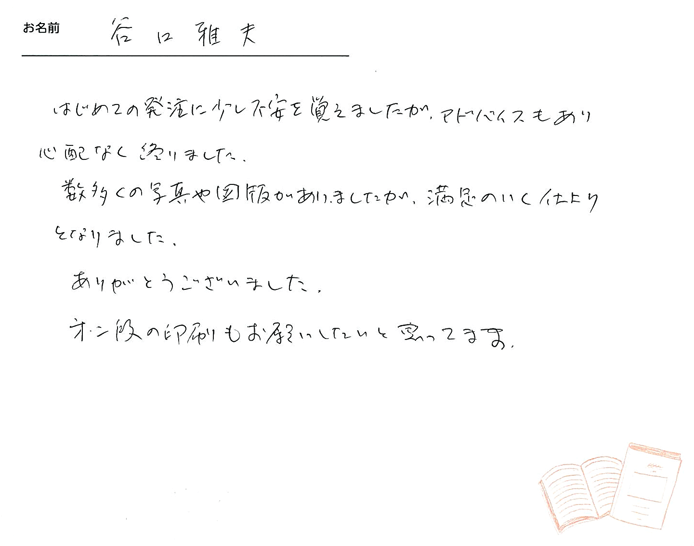 お名前 谷口雅夫
はじめての発注に少し不安を覚えましたが、アドバイスもあり
心配なく終りました。
数多くの写真や図版がありましたが、満足のいく仕上り
となりました。
ありがとうございました。
第二段の印刷もお願いしたいと思ってます。